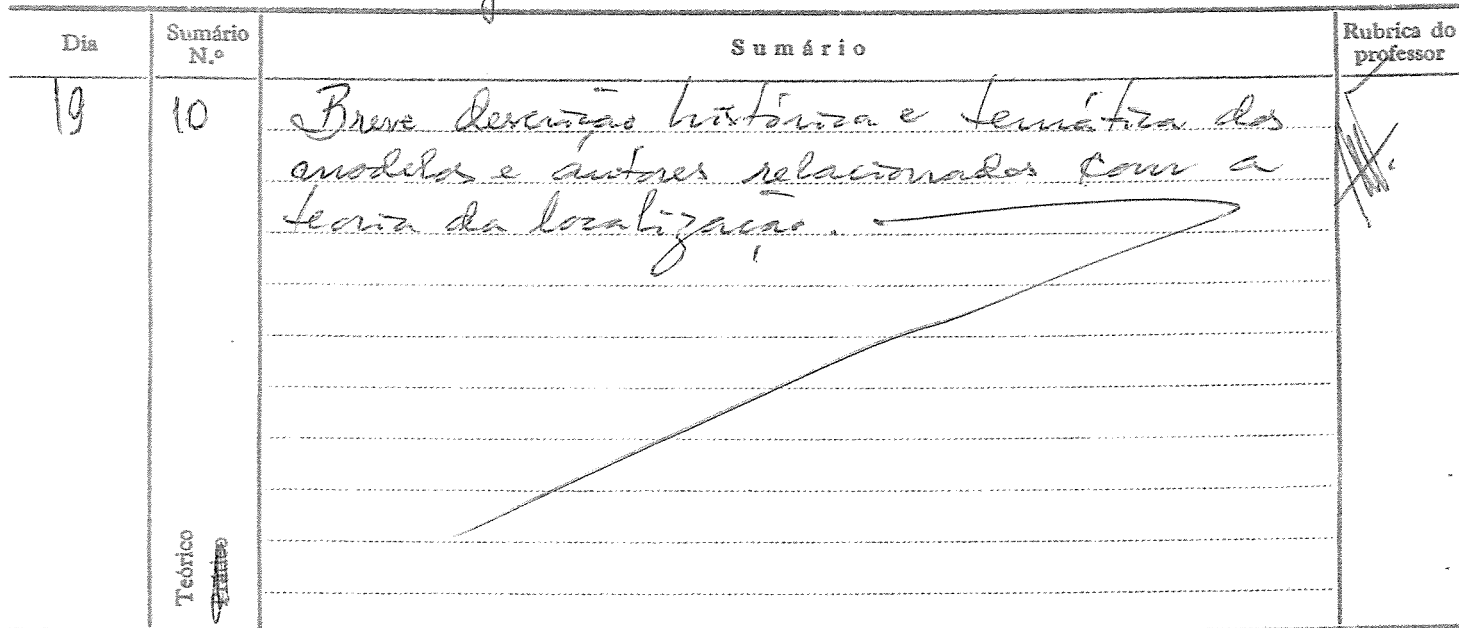 Dia Sumário N.º Sumário Rubrica do professor
19 10 Breve descrição histórica e temática dos
modelos e autores relacionados com a
teoria da localização.
Teórico